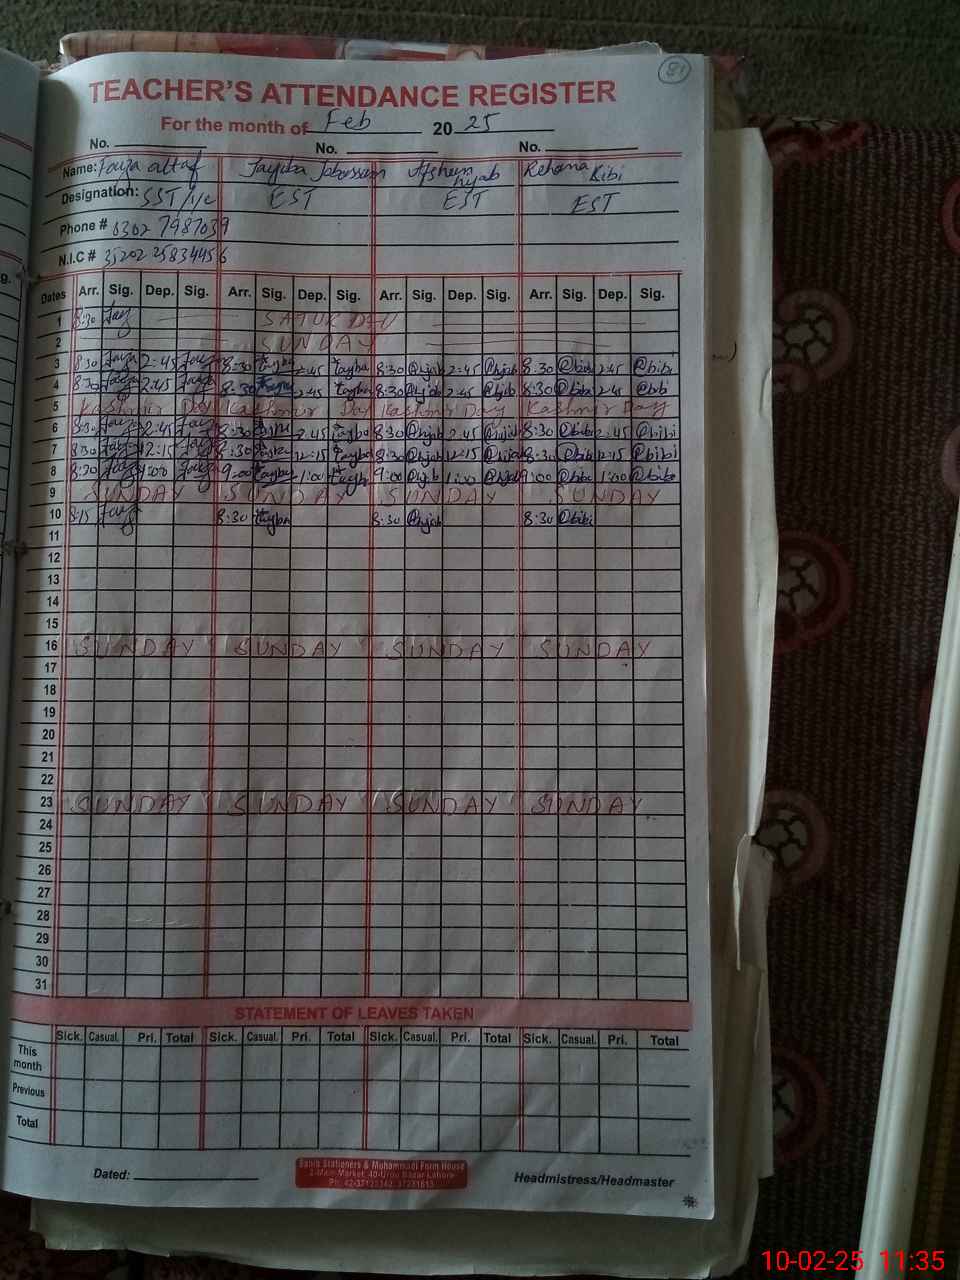 81
TEACHER'S ATTENDANCE REGISTER
For the month of Feb 20 25
No. No. No.
Name: Faiza altaf Tayiba Afsheen Rehana Bibi
hijab
Designation: SST/I/C EST EST EST
Phone # 0302 7987039
N.I.C # 35202 25834456
Dates Arr. Sig. Dep. Sig. Arr. Sig. Dep. Sig. Arr. Sig. Dep. Sig. Arr. Sig. Dep. Sig.
1 8:30 SATURDAY
2 SUNDAY
3 8:30 Faiza 2:45 8:30 2:45 tayba 8:30 @hijab 2:45 @hijab 8:30 @bibi 2:45 @bibi
4 8:30 2:45 8:30 2:45 tayba 8:30 @hijab 2:45 @hijab 8:30 @bibi 2:45 @bibi
5 Kashmir Day Kashmir Day Kashmir Day Kashmir Day
6 8:30 2:45 8:30 2:45 tayba 8:30 @hijab 2:45 @hijab 8:30 @bibi 2:45 @bibi
7 8:30 12:15 8:30 12:15 tayba 8:30 @hijab 12:15 @hijab 8:30 @bibi 12:15 @bibi
8 8:30 1:00 9:00 tayba 1:00 tayba 9:00 @hijab 1:00 @hijab 9:00 @bibi 1:00 @bibi
9 SUNDAY SUNDAY SUNDAY SUNDAY
10 8:15 8:30 tayba 8:30 @hijab 8:30 @bibi
11
12
13
14
15
16 SUNDAY SUNDAY SUNDAY SUNDAY
17
18
19
20
21
22
23 SUNDAY SUNDAY SUNDAY SUNDAY
24
25
26
27
28
29
30
31
STATEMENT OF LEAVES TAKEN
Sick. Casual. Pri. Total Sick. Casual. Pri. Total Sick. Casual. Pri. Total Sick. Casual. Pri. Total
This
month
Previous
Total
Dated: Headmistress/Headmaster
Stationers & Muhammadi Form House
2-Main Market, 40-Urdu Bazar Lahore
Ph. 42-37123342, 37231613
10-02-25 11:35